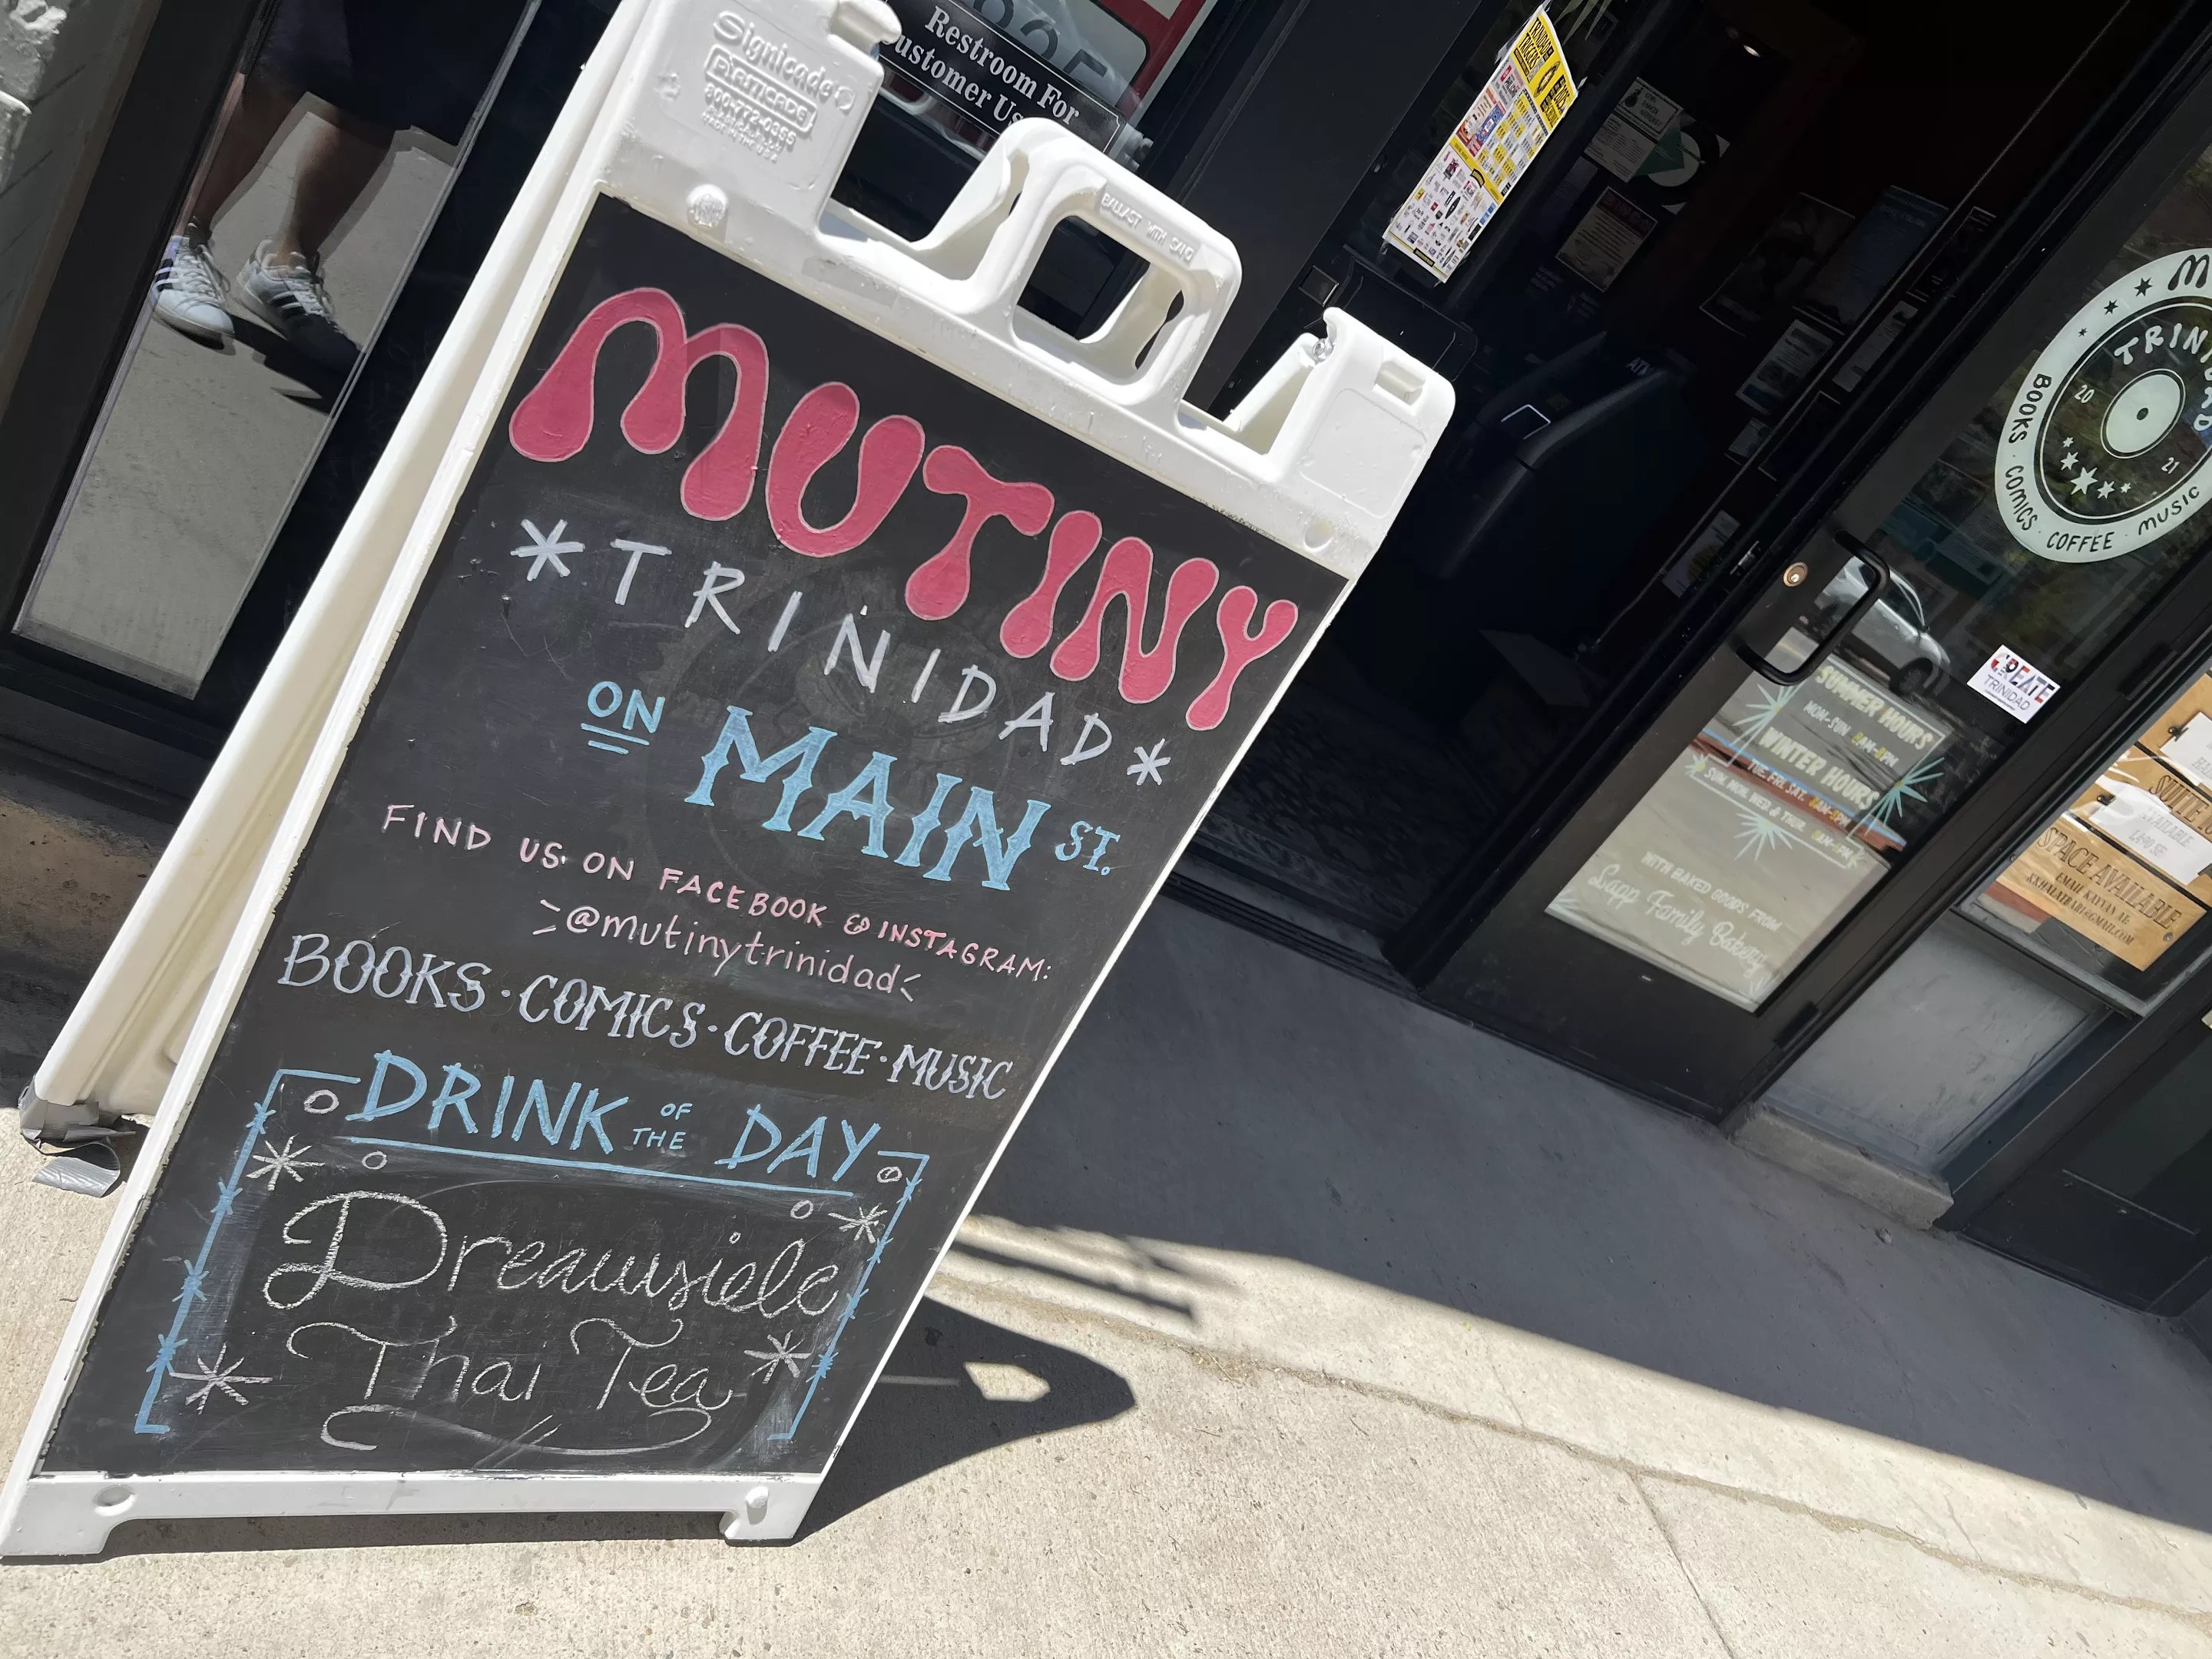 Signicade
PLASTICADE
800-772-0355
MADE IN
THE USA
Restroom For
Customer Us
BALLAST WITH SAND
MUTINY
*TRINIDAD*
ON MAIN ST.
FIND US ON FACEBOOK & INSTAGRAM:
@mutinytrinidad
BOOKS · COMICS · COFFEE · MUSIC
DRINK OF THE DAY
Dreamsicle
Thai Tea
ATM
M
TRINIDAD
20 21
BOOKS · COMICS · COFFEE · MUSIC
CREATE
TRINIDAD
SUMMER HOURS
MON-SUN 8AM-8PM
WINTER HOURS
TUE, FRI, SAT, 8AM-8PM
SUN, MON, WED & THUR. 8AM-6PM
WITH BAKED GOODS FROM
Sapp Family Bakery
SUITE
AVAILABLE
SPACE AVAILABLE
EMAIL KAYVAN AT:
KKHALATBARI@GMAIL.COM